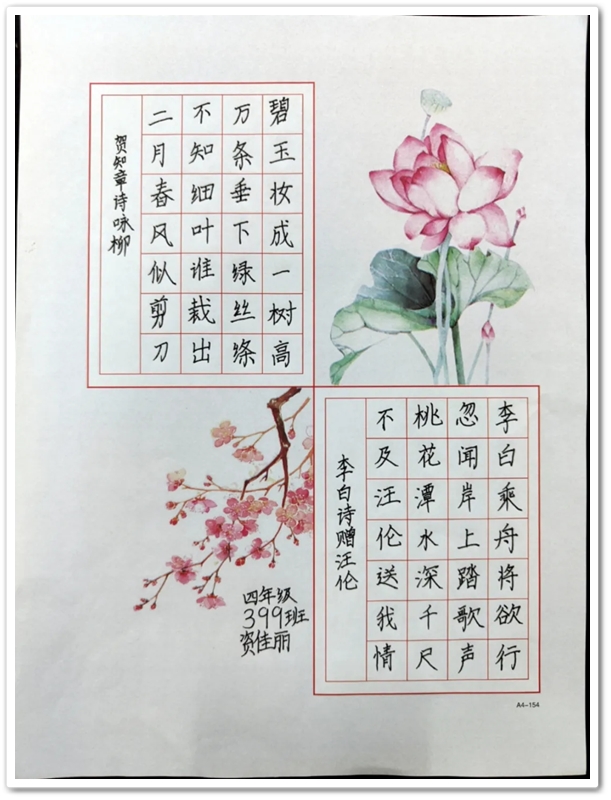 碧玉妆成一树高
万条垂下绿丝绦
不知细叶谁裁出
二月春风似剪刀
贺知章诗咏柳
李白乘舟将欲行
忽闻岸上踏歌声
桃花潭水深千尺
不及汪伦送我情
李白诗赠汪伦
四年级
399班
资佳丽
A4-154